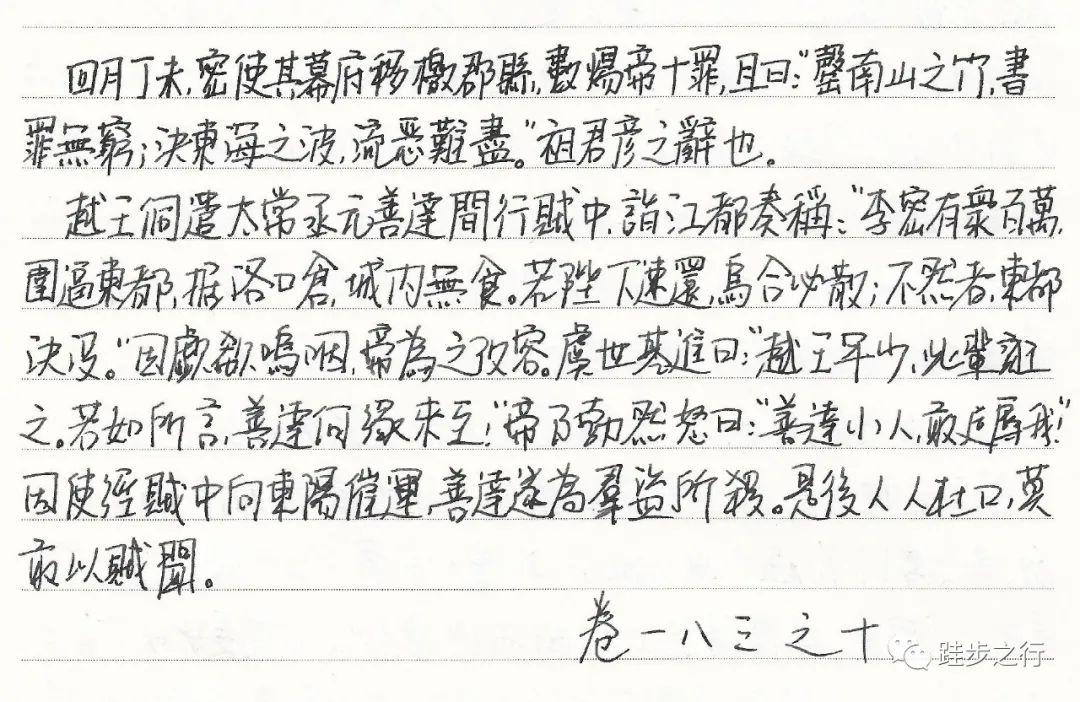 四月丁未,密使其幕府移檄郡縣,數煬帝十罪,且曰:“罄南山之竹,書
罪無窮;決東海之波,流惡難盡。”祖君彦之辭也。
越王侗遣太常丞元善達間行賊中,詣江都奏稱:“李密有衆百萬,
圍逼東都,据洛口倉,城内無食。若陛下速還,烏合必散;不然者,東都
決没。”因歔欷嗚咽,帝為之改容。虞世基進曰:“越王年少,此輩誑
之。若如所言,善達何緣來至!”帝乃勃然怒曰:“善達小人,敢廷辱我!”
因使經賊中向東陽催運,善達遂為羣盜所殺。是後人人杜口,莫
敢以賊聞。
卷一八三之十
跬步之行